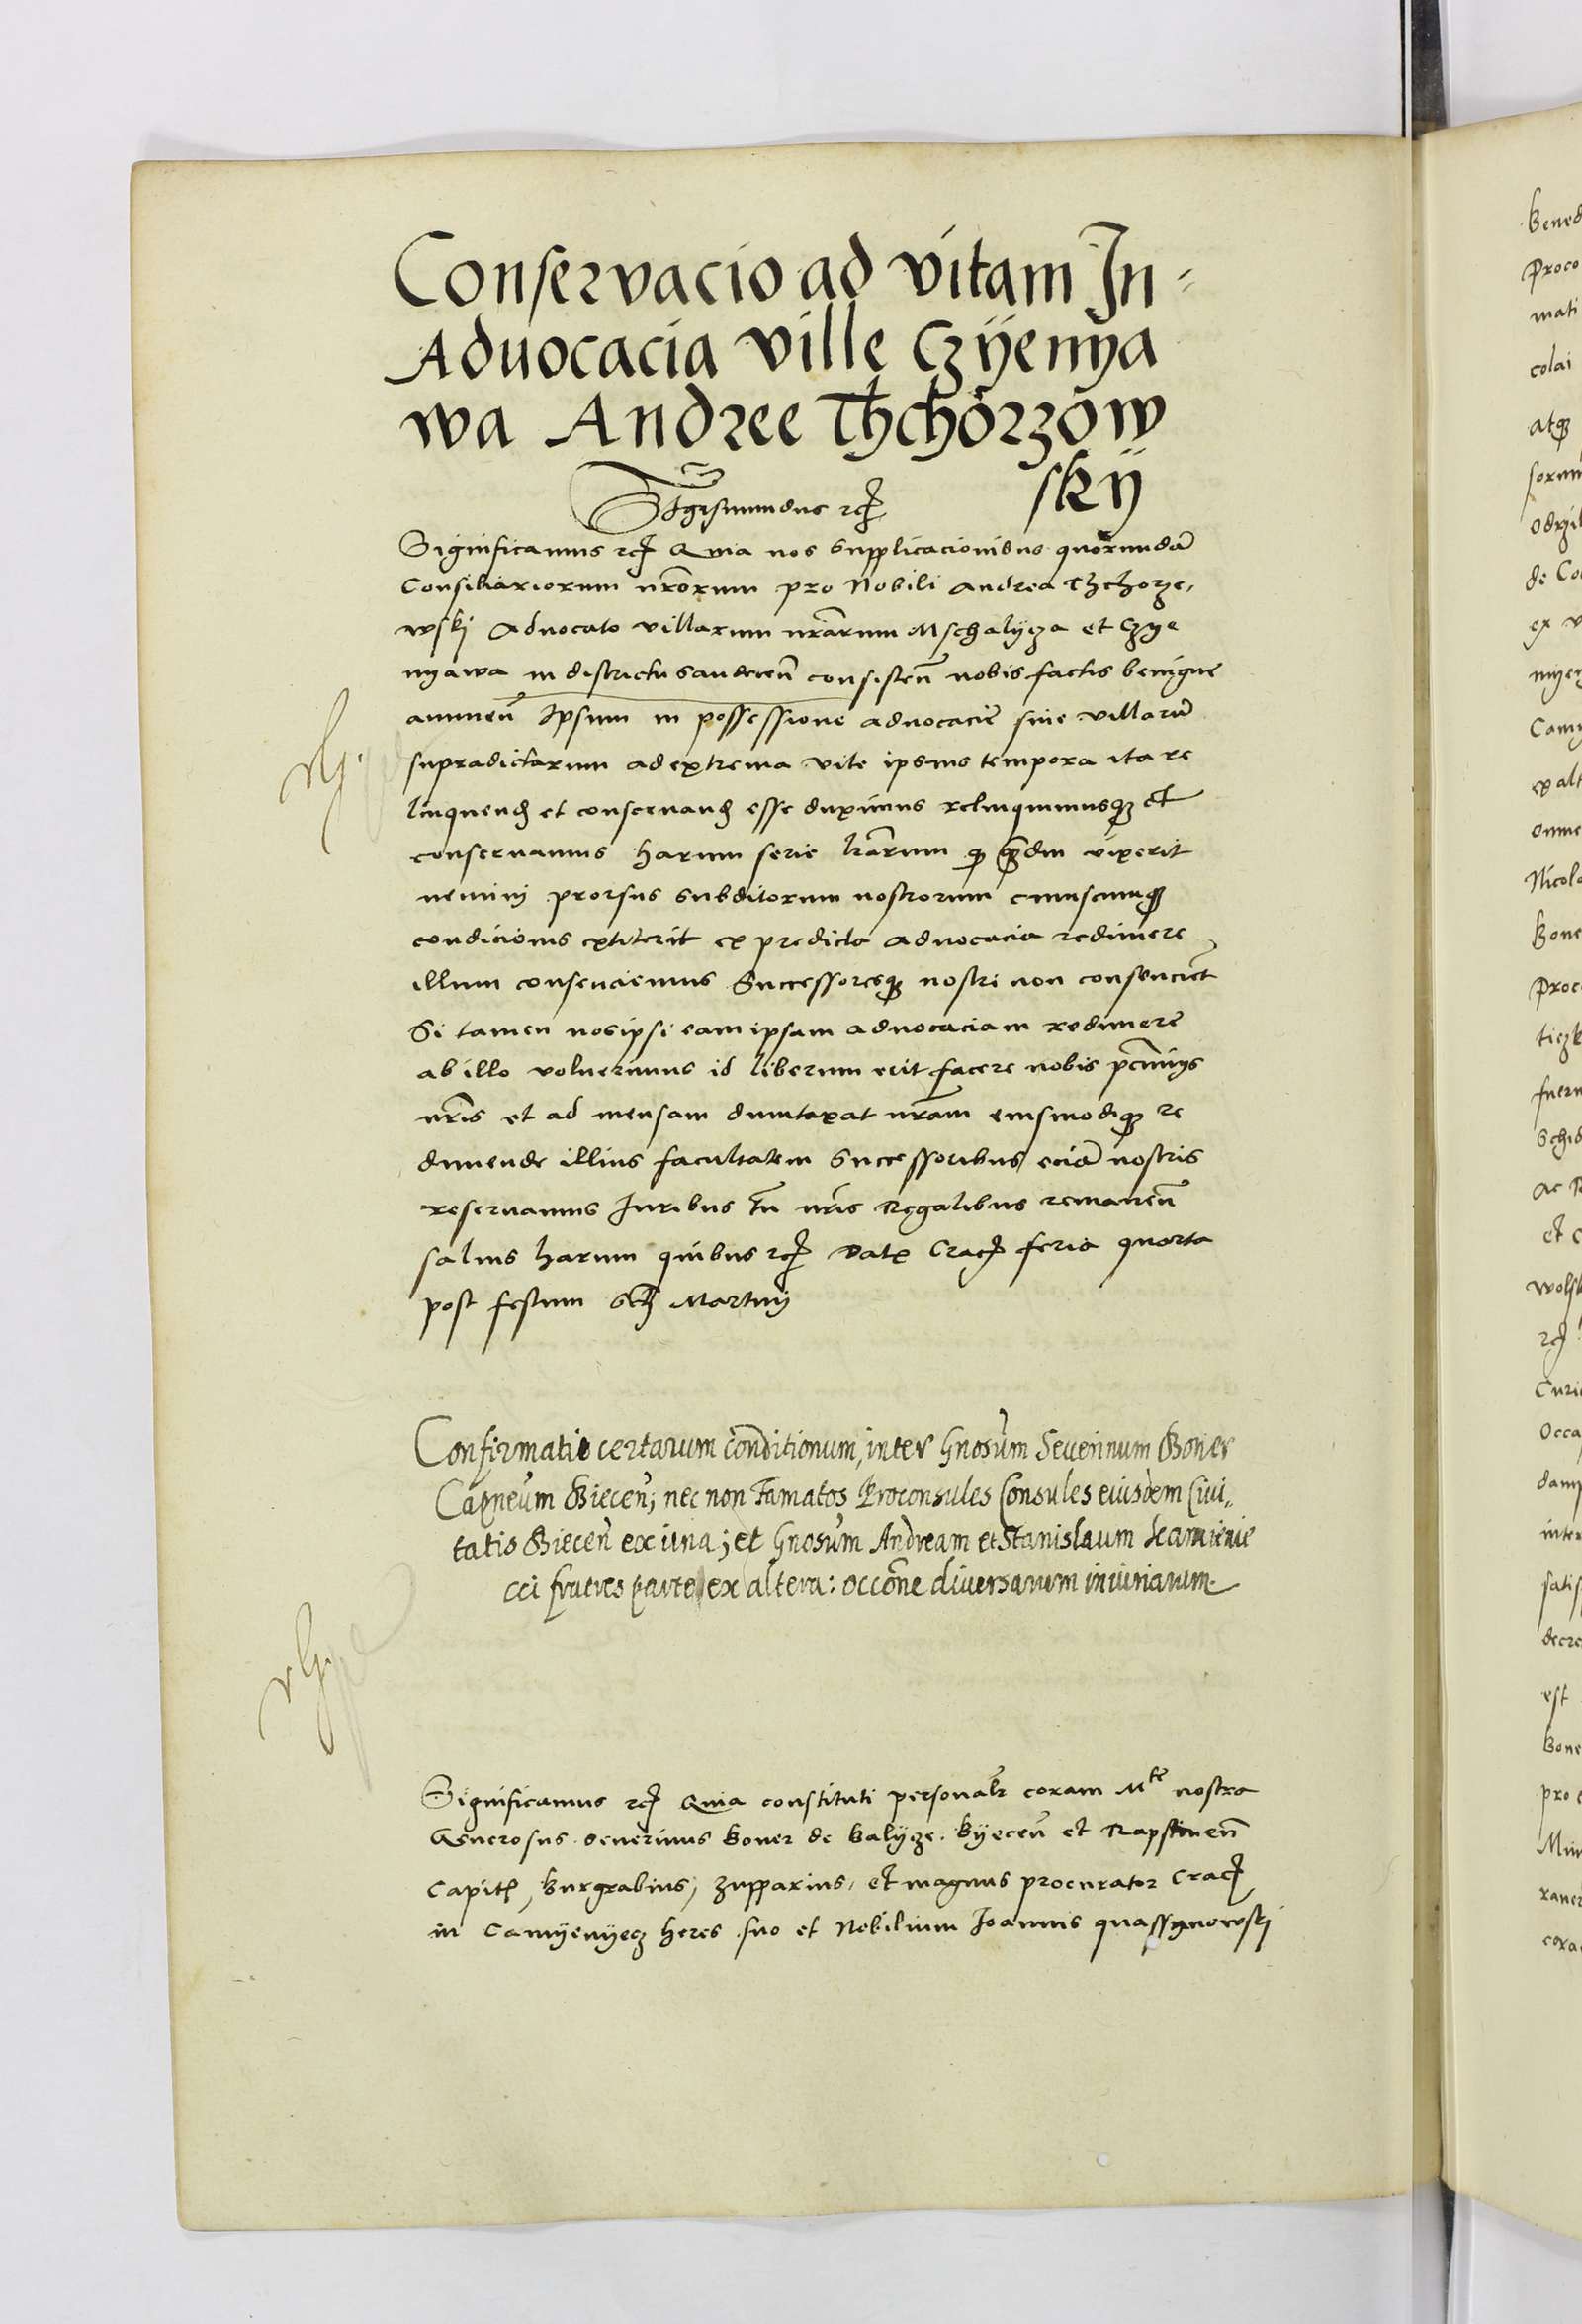 Conservacio ad vitam In-
Aduocacia ville Czÿenya
wa Andree Thchorzow
skÿ
Sigismundus rcz
Significamus rcz Quia nos supplicacionibus quorundā
Consiliariorum nrōrum pro Nobili Andrea Thchorze,
wskj Aduocato villarum nrārum Mschalÿcza et Czye
nyawa in districtu Sandecen̄ consisten̄ nobis factis benigne
annuen̄ Ipsum in possessione aduocacie siue villarū
supradictarum ad extrema vite ipsius tempora ita re
linquend et conseruand esse duximus relinquimusqz et
conseruamus harum serie lrārum qz qdm vixerit
nemini prorsus subditorum nostrorum cuiuscunqz
condicionis extiterit ex predicta aduocacia redimere
illum consenciemus Successoresqz nostri non consencient
Si tamen nosipsi eam ipsam aduocaciam redimere
ab illo voluerimus id liberum erit facere nobis pecunijs
nrīs et ad mensam dumtaxat nrām eiusmodiqz re
dimende illius facultatem Successoribus eciā nostris
reseruamus Iuribus tn̄ nrīs Regalibus remanen̄
saluis harum quibus rcz Datx Cracz feria quarta
post festum Sctj Martinj
Confirmatio certarum conditionum, inter Gnosūm Seuerinum Boner
Capneūm Biecen̄; nec non Famatos Proconsules Consules eiusdem Ciui„
tatis Biecen̄ ex una; et Gnosūm Andream et Stanislaum Kamienie
cci fratres parte ex altera: occōne diuersarum iniuriarum.
Significamus rcz Quia constituti personalr coram Mte nostra
Generosus Seuerinus Boner de Balÿcze. Bÿecen̄ et Rapstinen̄
Capits, Burgrabius, zupparius, et magnus procurator Cracz
in Camÿenyecz heres suo et Nobilium Ioannis quassynowskj
Bened
Proco
mati
colai
atqz
sorum
odrzil
de Co
ex v
Camy
ex alt
omne
Nicola
Bone
Proco
fuern
ac
et c
wolsk
rcz
Curi
Occa
damp
inter
satis
decre
est
Bone
pro
cora